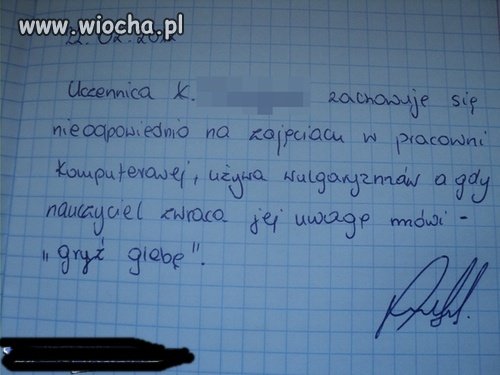 www.wiocha.pl
22.02.2012
Uczennica K. zachowuje się
nieodpowiednio na zajęciach w pracowni
komputerowej, używa wulgaryzmów a gdy
nauczyciel zwraca jej uwagę mówi -
„gryź glebę".